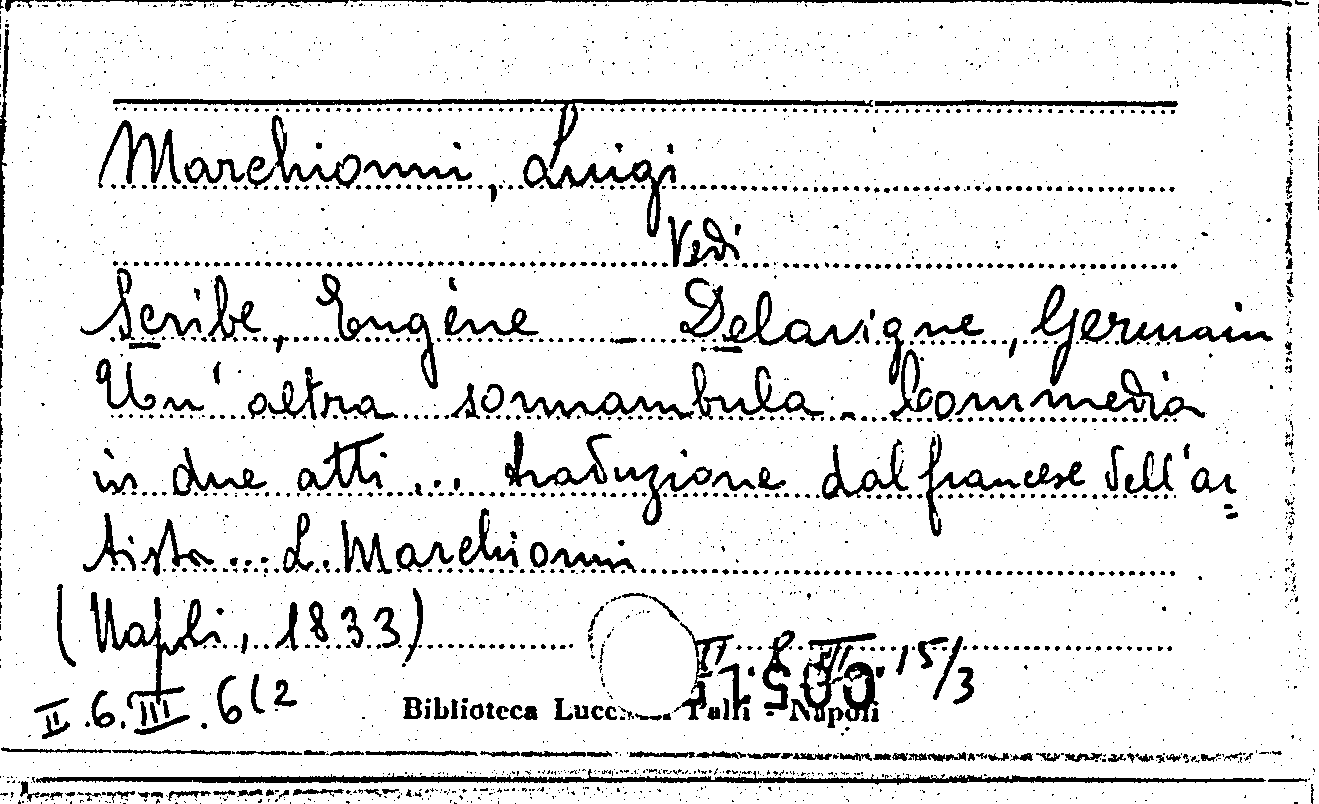 Marchionni, Luigi
Vedi
Scribe, Eugène - Delavigne, Germain
Un'altra sonnambula. Commedia
in due atti ... traduzione dal francese dell'ar=
tista... L. Marchionni
(Napoli, 1833)
II. 8. III. 15/3
II.6.III.6(2
Biblioteca - Napoli